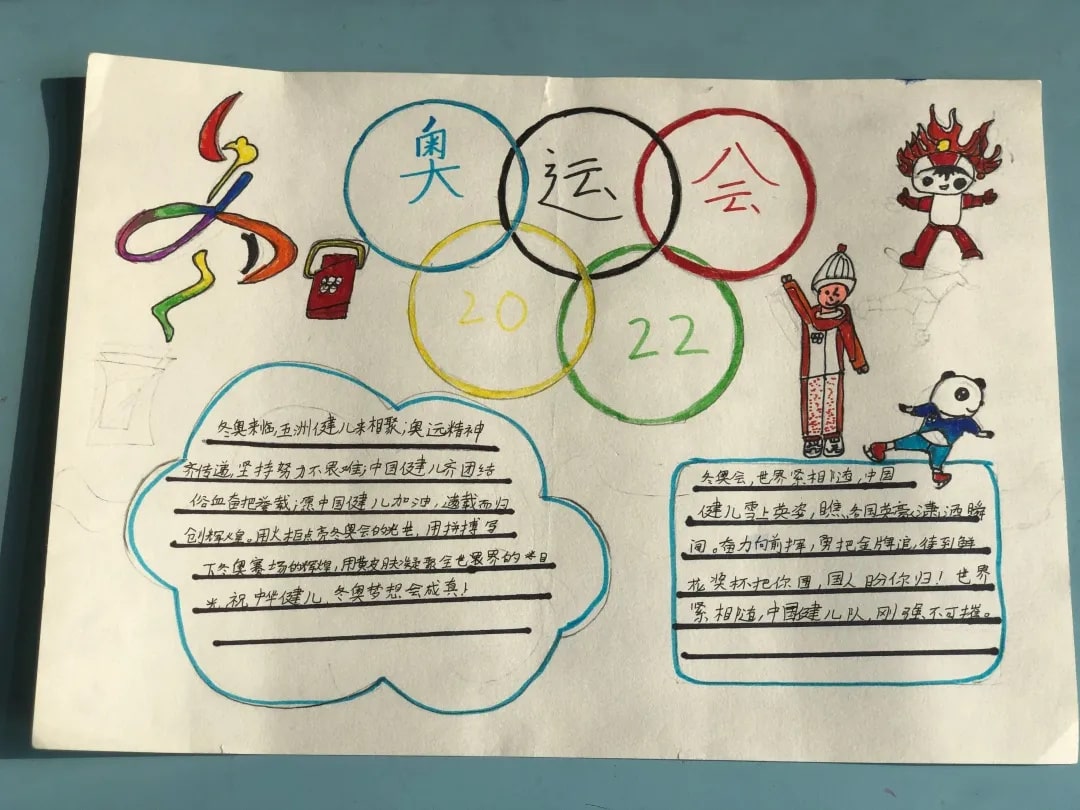 奥 运 会
20 22
冬奥来临,五洲健儿来相聚;奥远精神
齐传递,坚持努力不畏难;中国健儿齐团结
俗血奋把拳载;愿中国健儿加油,遒载而归
创辉煌。用火炬点亮冬奥会的光芒,用拼搏写
下冬奥赛场的辉煌,用黄皮肤凝聚全世界的目
光,祝中华健儿,冬奥梦想会成真!
冬奥会,世界紧相随,中国
健儿雪上英姿,瞧各国英豪潇洒瞬
间。奋力向前挥,勇把金牌追,待到鲜
花奖杯把你围,国人盼你归!世界
紧相随,中国健儿队,刚强不可摧。